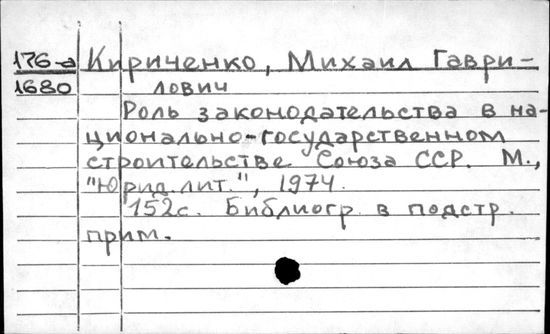 176-а Кириченко, Михаил Гаври-
1680 лович
Роль законодательства в на-
ционально-государственном
строительстве Союза ССР. М.,
"Юрид. лит.", 1974.
152с. Библиогр. в подстр.
прим.